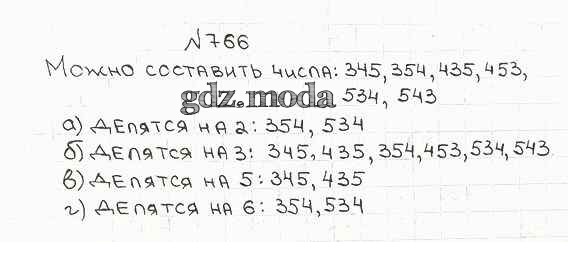 №766
Можно составить числа: 345, 354, 435, 453,
gdz.moda 534, 543
а) делятся на 2: 354, 534
б) делятся на 3: 345, 435, 354, 453, 534, 543
в) делятся на 5: 345, 435
г) делятся на 6: 354, 534